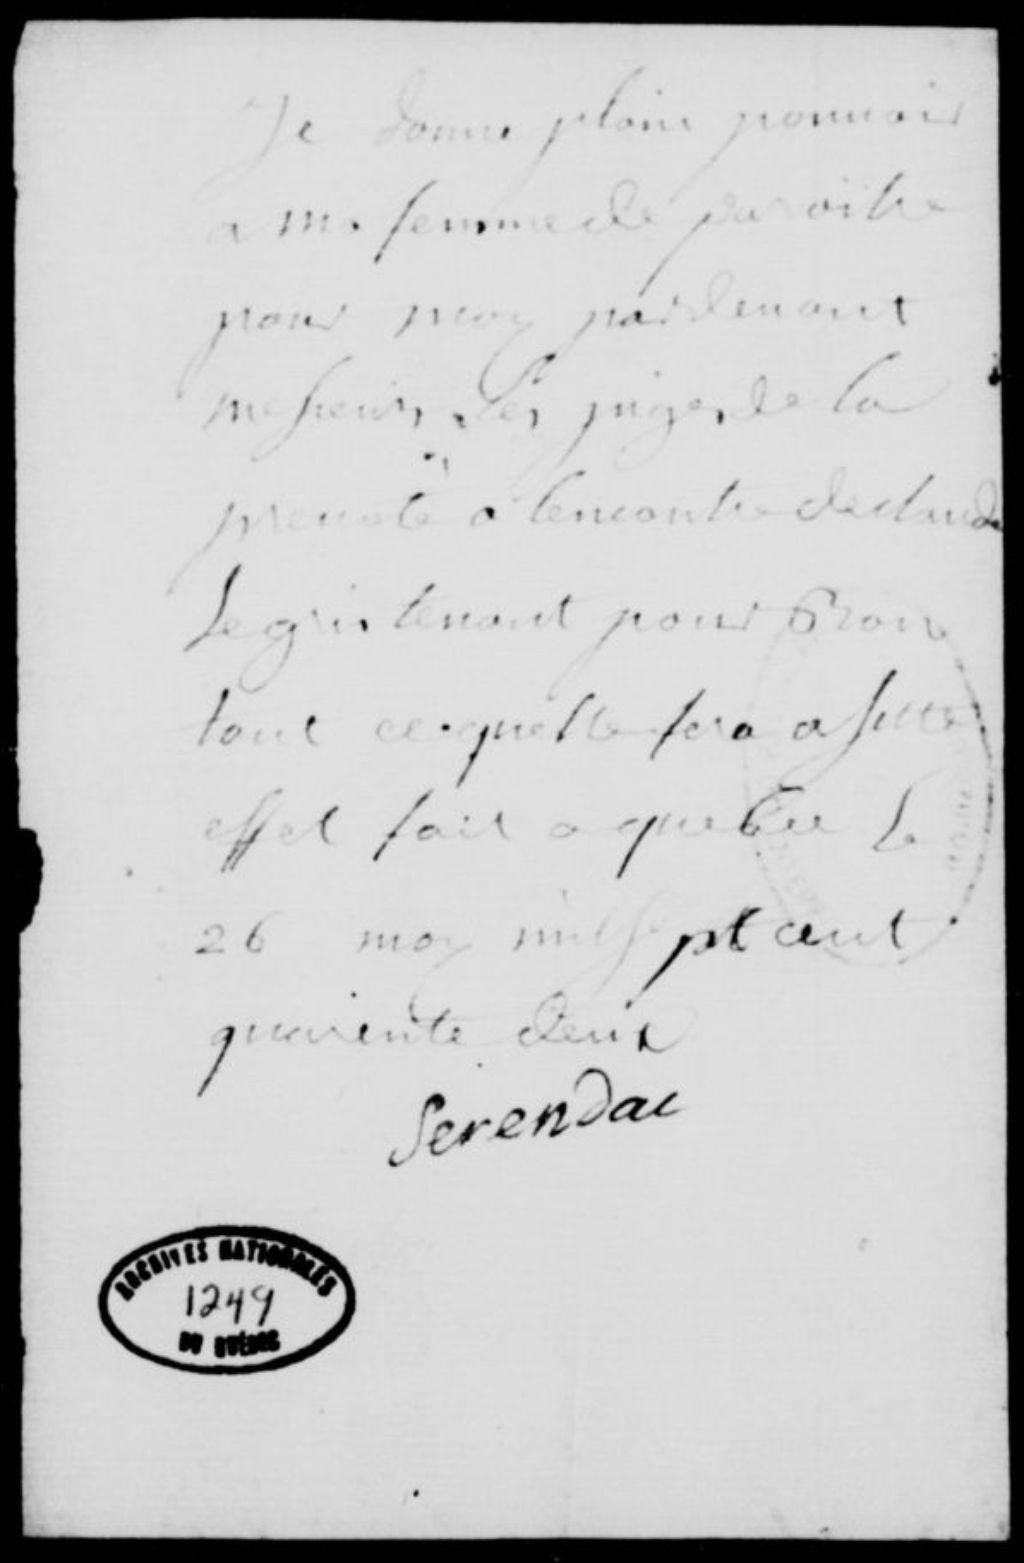 Je donne plain pouuoir
a ma femme de paroitre
pour moy pardeuant
messieurs les juges de la
preuoté a lencontre de claude
Legris tenant pour Bon
tout ce quelle fera a sette
effet fait a quebec le
26 may mil se pt cent
quarente deux
Serendac
ARCHIVES NATIONALES
1249
DU QUÉBEC